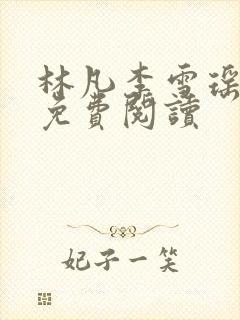 林凡李雪瑶
免費閱讀
妃子一笑